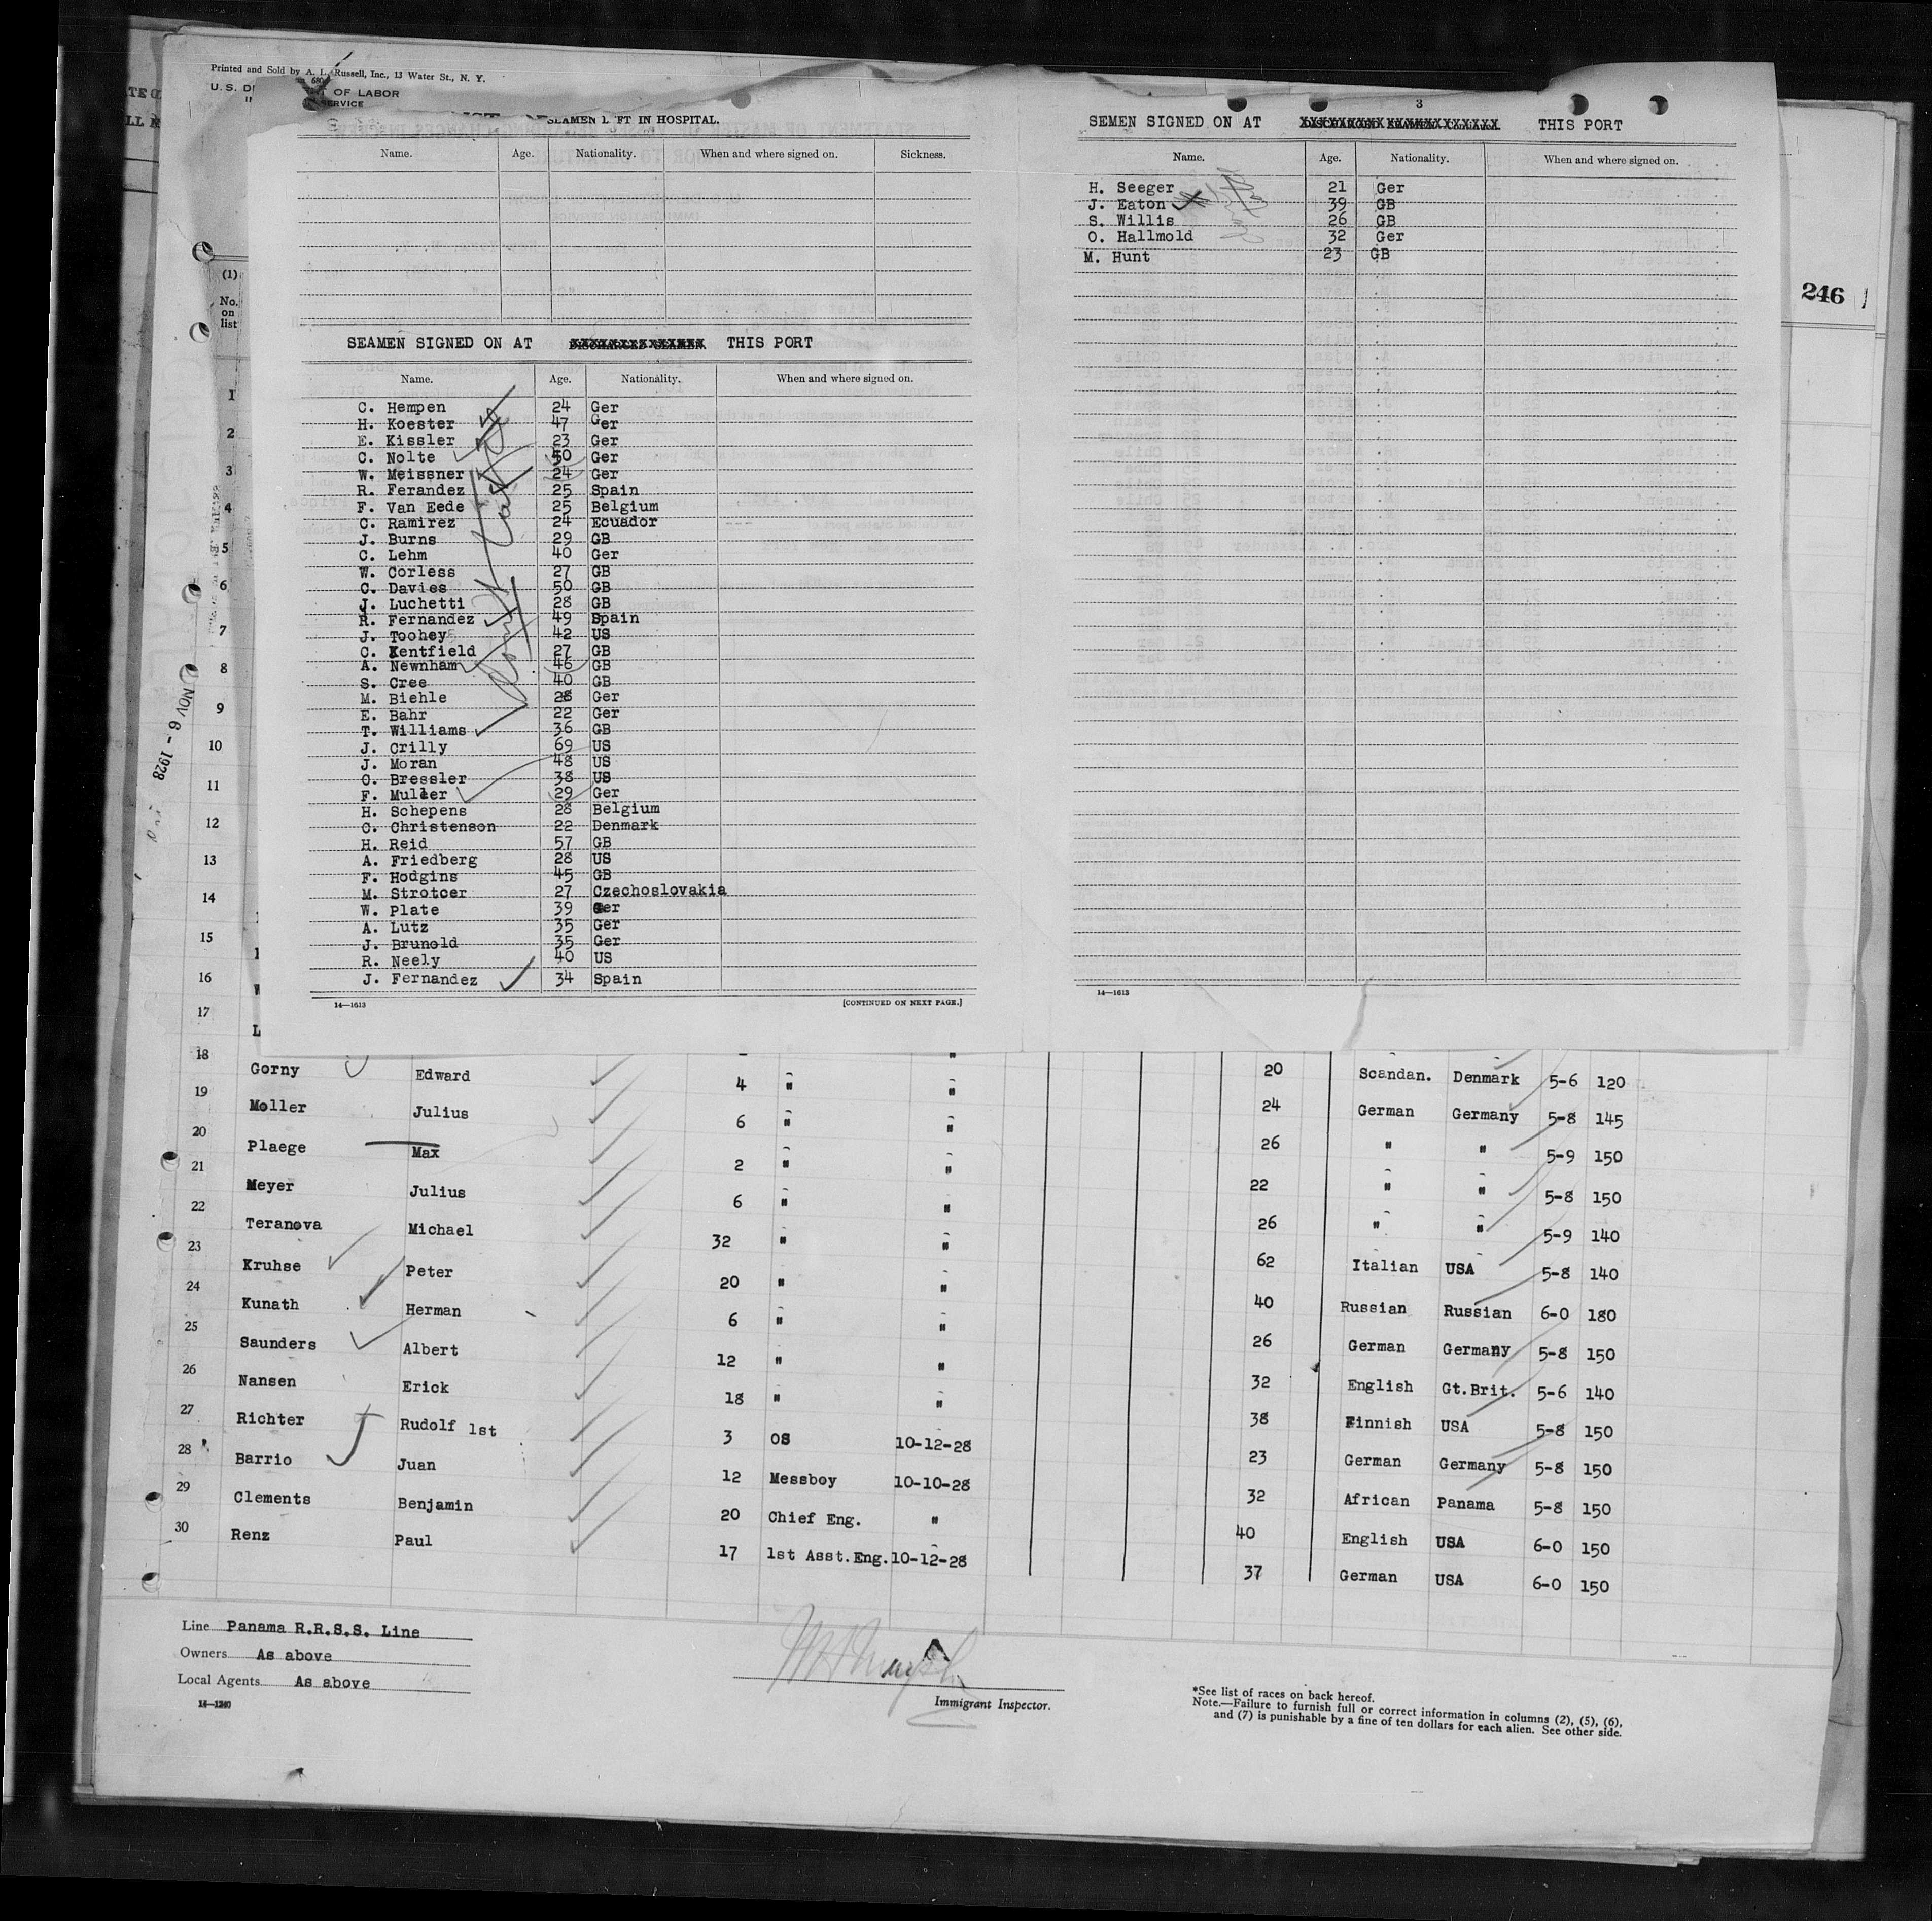 Printed and Sold by A. L. Russell, Inc., 13 Water St., N. Y.
U. S. D OF LABOR
SERVICE
SEAMEN L FT IN HOSPITAL.
Name. Age. Nationality. When and where signed on. Sickness.
SEAMEN SIGNED ON AT THIS PORT
Name. Age. Nationality. When and where signed on.
C. Hempen 24 Ger
H. Koester 47 Ger
E. Kissler 23 Ger
C. Nolte 50 Ger
W. Meissner 24 Ger
R. Ferandez 25 Spain
F. Van Eede 25 Belgium
C. Ramirez 24 Ecuador
J. Burns 29 GB
C. Lehm 40 Ger
W. Corless 27 GB
C. Davies 50 GB
J. Luchetti 28 GB
R. Fernandez 49 Spain
J. Toohey 42 US
C. Kentfield 27 GB
A. Newnham 46 GB
S. Cree 40 GB
M. Biehle 28 Ger
E. Bahr 22 Ger
T. Williams 36 GB
J. Crilly 69 US
J. Moran 48 US
O. Bressler 38 US
F. Muller 29 Ger
H. Schepens 28 Belgium
C. Christenson 22 Denmark
H. Reid 57 GB
A. Friedberg 28 US
F. Hodgins 45 GB
M. Strotcer 27 Czechoslovakia
W. Plate 39 Ger
A. Lutz 35 Ger
J. Brunold 35 Ger
R. Neely 40 US
J. Fernandez 34 Spain
14—1613 [CONTINUED ON NEXT PAGE.]
3
SEMEN SIGNED ON AT XXXXXXXXXXXXXXXXXXXX THIS PORT
Name. Age. Nationality. When and where signed on.
H. Seeger 21 Ger
J. Eaton 39 GB
S. Willis 26 GB
O. Hallmold 32 Ger
M. Hunt 23 GB
14—1613
246
(1)
No. on list
NOV 6 - 1928
1
2
3
4
5
6
7
8
9
10
11
12
13
14
15
16
17
18 Gorny Edward 4 " " 20 Scandan. Denmark 5-6 120
19 Moller Julius 6 " " 24 German Germany 5-8 145
20 Plaege Max 2 " " 26 " " 5-9 150
21 Meyer Julius 6 " " 22 " " 5-8 150
22 Teranova Michael 32 " " 26 " " 5-9 140
23 Kruhse Peter 20 " " 62 Italian USA 5-8 140
24 Kunath Herman 6 " " 40 Russian Russian 6-0 180
25 Saunders Albert 12 " " 26 German Germany 5-8 150
26 Nansen Erick 18 " " 32 English Gt.Brit. 5-6 140
27 Richter Rudolf 1st 3 OS 10-12-28 38 Finnish USA 5-8 150
28 Barrio Juan 12 Messboy 10-10-28 23 German Germany 5-8 150
29 Clements Benjamin 20 Chief Eng. " 32 African Panama 5-8 150
30 Renz Paul 17 1st Asst.Eng. 10-12-28 40 English USA 6-0 150
37 German USA 6-0 150
Line Panama R.R.S.S. Line
Owners As above
Local Agents As above
14—1240
Immigrant Inspector.
*See list of races on back hereof.
Note.—Failure to furnish full or correct information in columns (2), (5), (6),
and (7) is punishable by a fine of ten dollars for each alien. See other side.